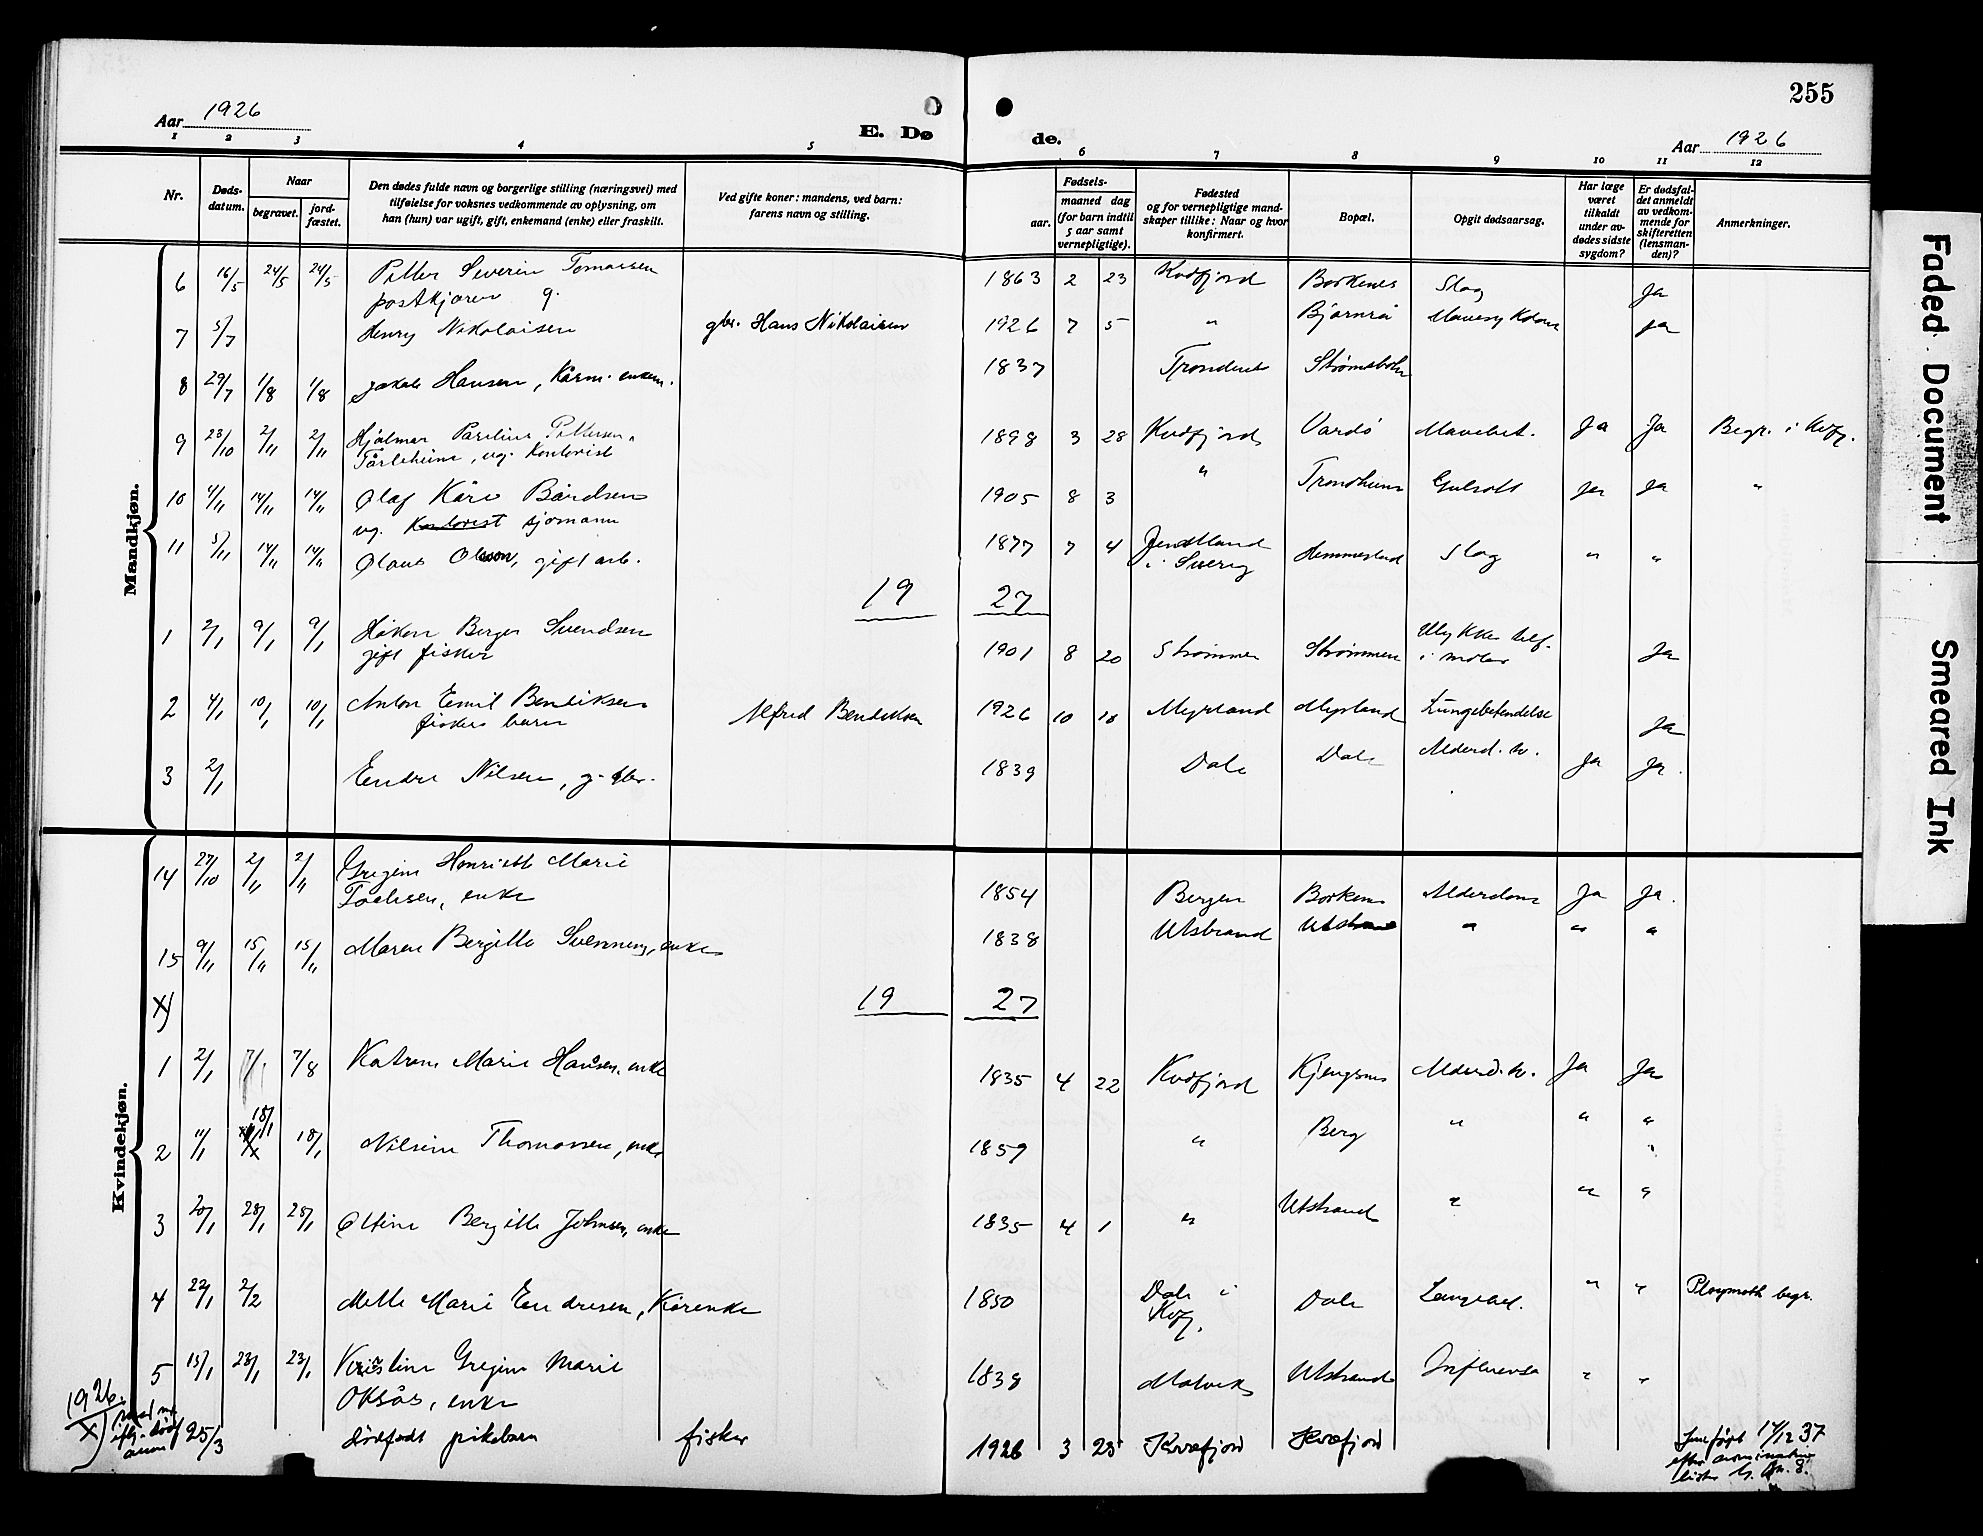 255
Aar 1926
E. Dø
de.
Aar 1926
1 2 3 4 5 6 7 8 9 10 11 12
Nr.
Døds-
datum.
Naar
begravet.
jord-
fæstet.
Den dødes fulde navn og borgerlige stilling (næringsvei) med
tilføielse for voksnes vedkommende av oplysning, om
han (hun) var ugift, gift, enkemand (enke) eller fraskilt.
Ved gifte koner: mandens, ved barn:
farens navn og stilling.
Fødsels-
aar. maaned dag
(for barn indtil
5 aar samt
vernepligtige).
Fødested
og for vernepligtige mand-
skaper tillike: Naar og hvor
konfirmert.
Bopæl.
Opgit dødsaarsag.
Har læge
været
tilkaldt
under av-
dødes sidste
sygdom?
Er dødsfal-
det anmeldt
av vedkom-
mende for
skifteretten
(lensman-
den)?
Anmerkninger.
Mandkjøn.
6 16/5 24/5 24/5 Petter Severin Tomassen 1863 2 23 Kvæfjord Borkenes Slag Ja
postkjører g.
7 5/7 Henry Nikolaisen gbr. Hans Nikolaisen 1926 7 5 " Bjørnrå Ja
8 29/7 1/8 1/8 Jakob Hansen, Kårm. enkem. 1837 Trondenes
9 23/10 2/11 2/11 Hjalmar Parelius Pettersen 1898 3 28 Kvæfjord Vardø Mavebet. Ja Ja Begr. i Kvfj.
ug. Kontorist
10 4/11 14/11 14/11 Olaf Kåre Bårdsen 1905 8 3 " Trondheim Ja Ja "
ug. Kontorist sjømann
11 5/11 14/11 14/11 Olaus Olsson, gift arb. 1877 7 4 Jemtland Hemmestad Slag " "
i Sverig
19 27
1 2/1 9/1 9/1 Håkon Berger Svendsen 1901 8 20 Strømmen Strømmen Ulykkestilf. Ja
gift fisker
2 4/1 10/1 10/1 Anton Emil Bendiksen Alfred Bendiksen 1926 10 18 Myrland Myrland Lungebetendelse Ja
fiskers barn
3 2/1 Endre Nilsen, g. gbr. 1839 Dale Dale Alderd. sv. Ja Ja.
Kvindekjøn.
14 27/10 2/11 2/11 Gregine Henriette Marie 1854 Bergen Borkenes Alderdom Ja Ja.
enke
15 9/11 15/11 15/11 Maren Bergitte Svenning, enke 1838 Utstrand Utstrand " " "
X)
19 27
1 2/1 7/1 7/8 Katrine Marie Hansen, enke 1835 4 22 Kvæfjord Kjengsnes Alderd. sv. Ja Ja
2 11/1 18/1 18/1 Nilsine Thomassen, enke 1859 " Berg " " "
3 20/1 28/1 28/1 Oline Bergitte Johnsen, enke 1835 4 1 " Utstrand " " "
4 22/1 2/2 Mette Marie Endresen, Kårenke 1850 Dale i Dale Lungebet. " " Plogmoth begr.
Kvfj.
5 13/1 23/1 23/1 Kristine Gregine Marie 1839 Malvik Utstrand Influensa " "
Oksås, enke
1926
X)
25/3 dødfødt pikebarn fisker 1926 3 25 Kvæfjord Kvæfjord Innført 17/12 37
Faded Document
Smeared Ink